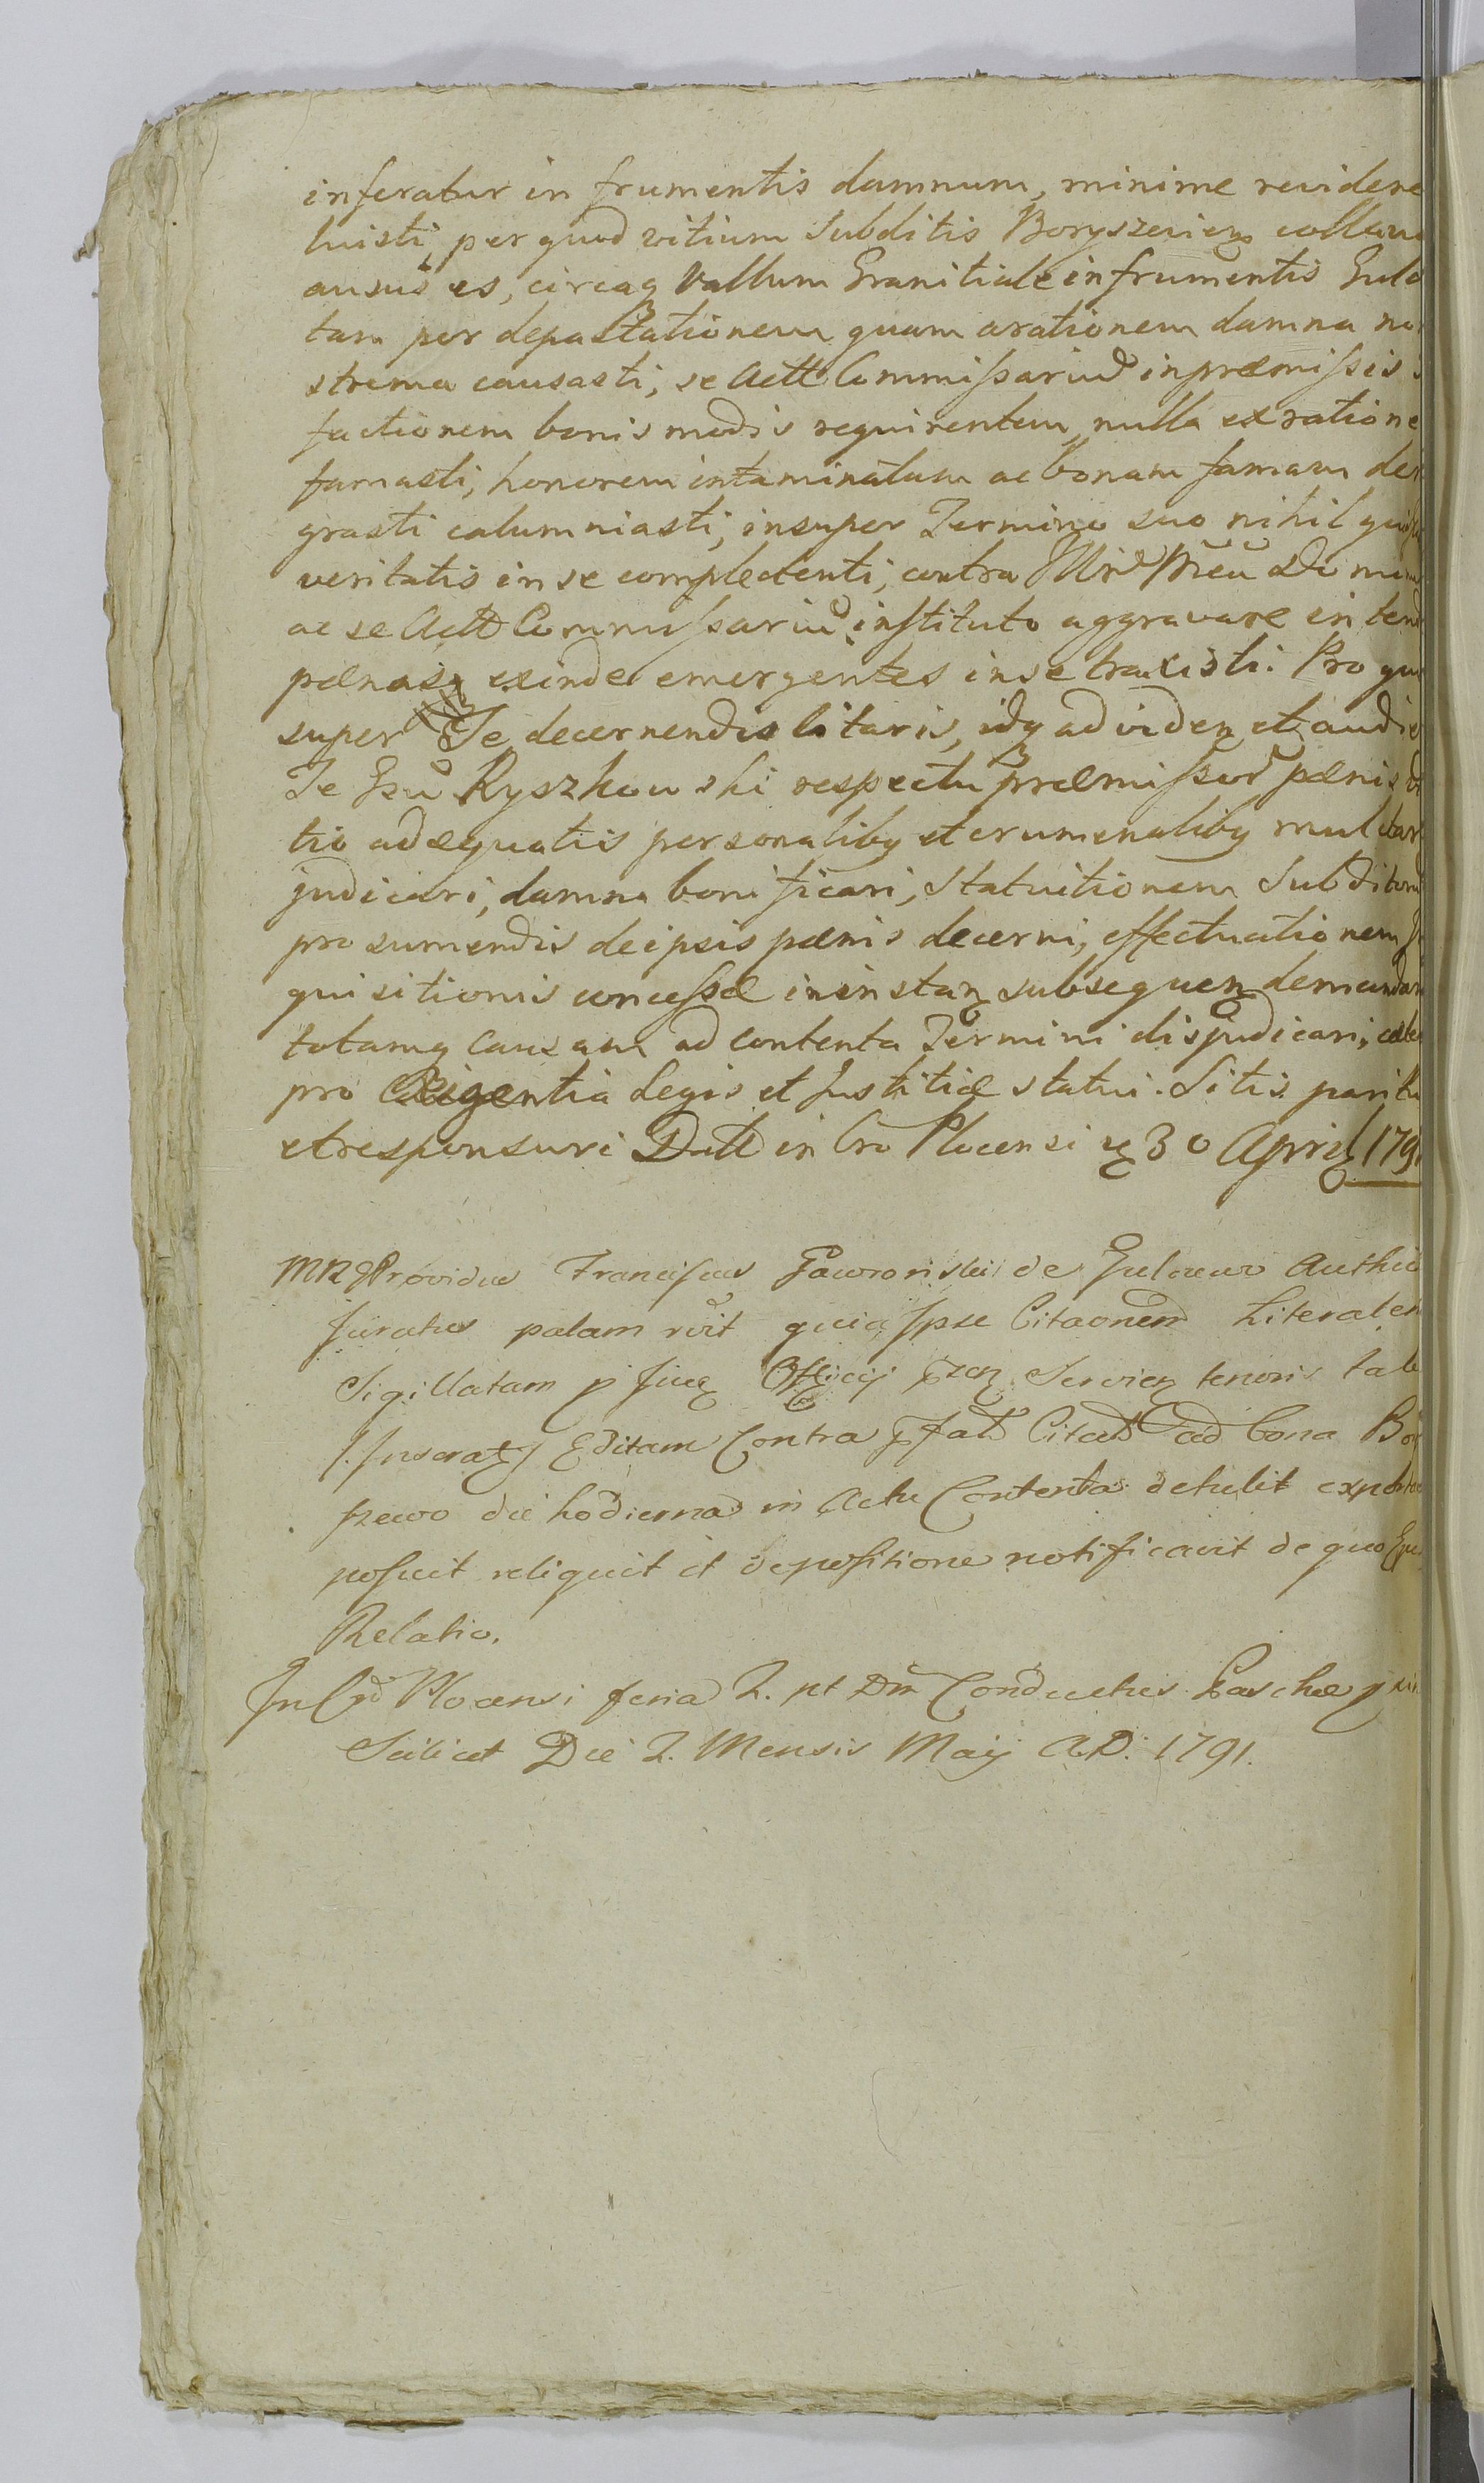 inferatur in frumentis damnum, minime revidere
luisti, per quod vitium Subditis Boryszewien
ausus es, circaq Vallum Granitiale in frumentis Gulc
tam per depastationem quam arationem damna no
strema causasti, se Actt Commissariu in præmissis
factionem bonis modis requirentem, nulla ex ratione
famasti, honorem intaminatum ac bonam famam de
grasti calumniasti, insuper Termino suo nihil
veritatis in se complectenti, contra
ac se Actt Commissariu instituto aggravare
pænasq exinde emergentes in se traxisti. Pro
super Te decernendis litaris, idq ad viden et audi
Te Gsu Ryszkowski respectu præmissor pænis
tio adæquatis personaliby et crumenaliby mulctar
judicari, damna bonificari, Statuitionem Subditor
pro sumendis de ipsis pænis decerni, effectuationem
quisitionis concessæ in instan subsequen demandar
totamq Causam ad contenta Termini disjudicari,
pro Exigentia Legis et Justitiæ statui. Sitis parit
et responsuri Datt in Cro Plocensi 30 April 1791
MRD Providus Franciscus Gaworonski de Gulczewo Authen
Juratus palam rcit quia Ipse Citaonem Literalem
Sigillatam p Offcij Servien tenoris tal
/Inserat/ Editam Contra pfat Citat ad bona Bo
szewo die hodierna in Actu Contenta detulit
posuit reliquit et depositione notificavit de quo
Relatio.
In Plocensi feria 2. pt Dm Conductus Paschæ
Scilicet Die 2. Mensis Maij A.D. 1791.